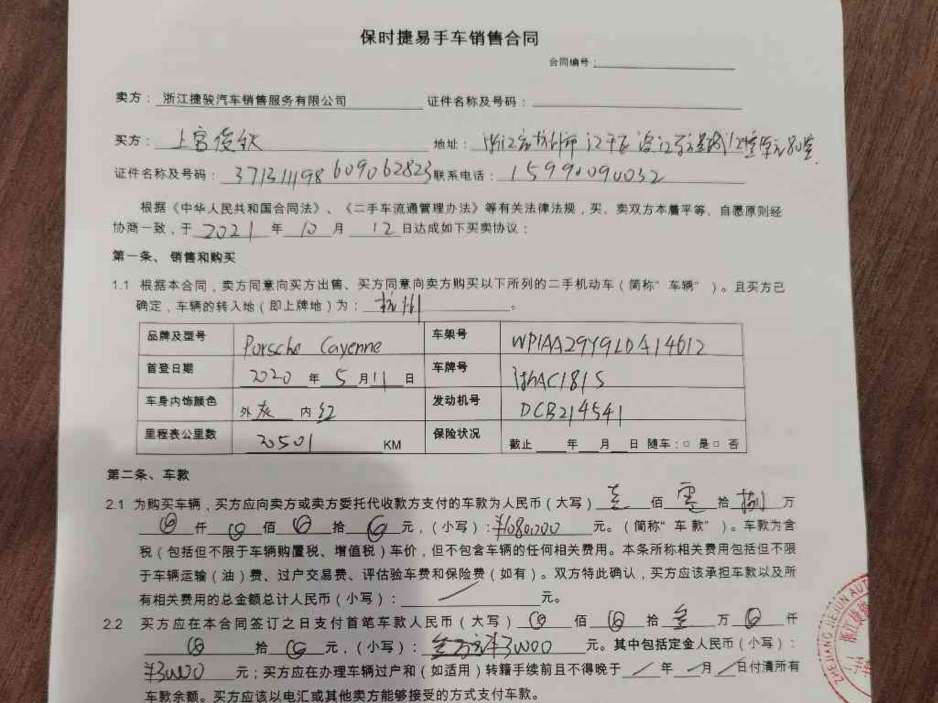 保时捷易手车销售合同
合同编号：
卖方：浙江捷骏汽车销售服务有限公司 证件名称及号码：
买方：上官俊钦 地址：浙江省杭州市江干区
证件名称及号码：371311198609062823 联系电话：15990090032
根据《中华人民共和国合同法》、《二手车流通管理办法》等有关法律法规，买、卖双方本着平等、自愿原则经
协商一致，于 2021 年 10 月 12 日达成如下买卖协议：
第一条、销售和购买
1.1 根据本合同，卖方同意向买方出售、买方同意向卖方购买以下所列的二手机动车（简称“车辆”）。且买方已
确定，车辆的转入地（即上牌地）为：杭州。
品牌及型号 Porsche Cayenne 车架号 WP1AA29Y9LDA14612
首登日期 2020 年 5 月 11 日 车牌号 AC181S
车身内饰颜色 外灰 内红 发动机号 DCB214541
里程表公里数 20501 KM 保险状况 截止 年 月 日 随车：□ 是 □ 否
第二条、车款
2.1 为购买车辆，买方应向卖方或卖方委托代收款方支付的车款为人民币（大写）壹 佰 零 拾 捌 万
仟 佰 拾 元，（小写）：¥1080,000 元。（简称“车款”）。车款为含
税（包括但不限于车辆购置税、增值税）车价，但不包含车辆的任何相关费用。本条所称相关费用包括但不限
于车辆运输（油）费、过户交易费、评估验车费和保险费（如有）。双方特此确认，买方应该承担车款以及所
有相关费用的总金额总计人民币（小写）： 元。
2.2 买方应在本合同签订之日支付首笔车款人民币（大写） 佰 拾 叁 万 仟
佰 拾 元，（小写）： 元。其中包括定金人民币（小写）：
元；买方应在办理车辆过户和（如适用）转籍手续前且不得晚于 年 月 日付清所有
车款余额。买方应该以电汇或其他卖方能够接受的方式支付车款。